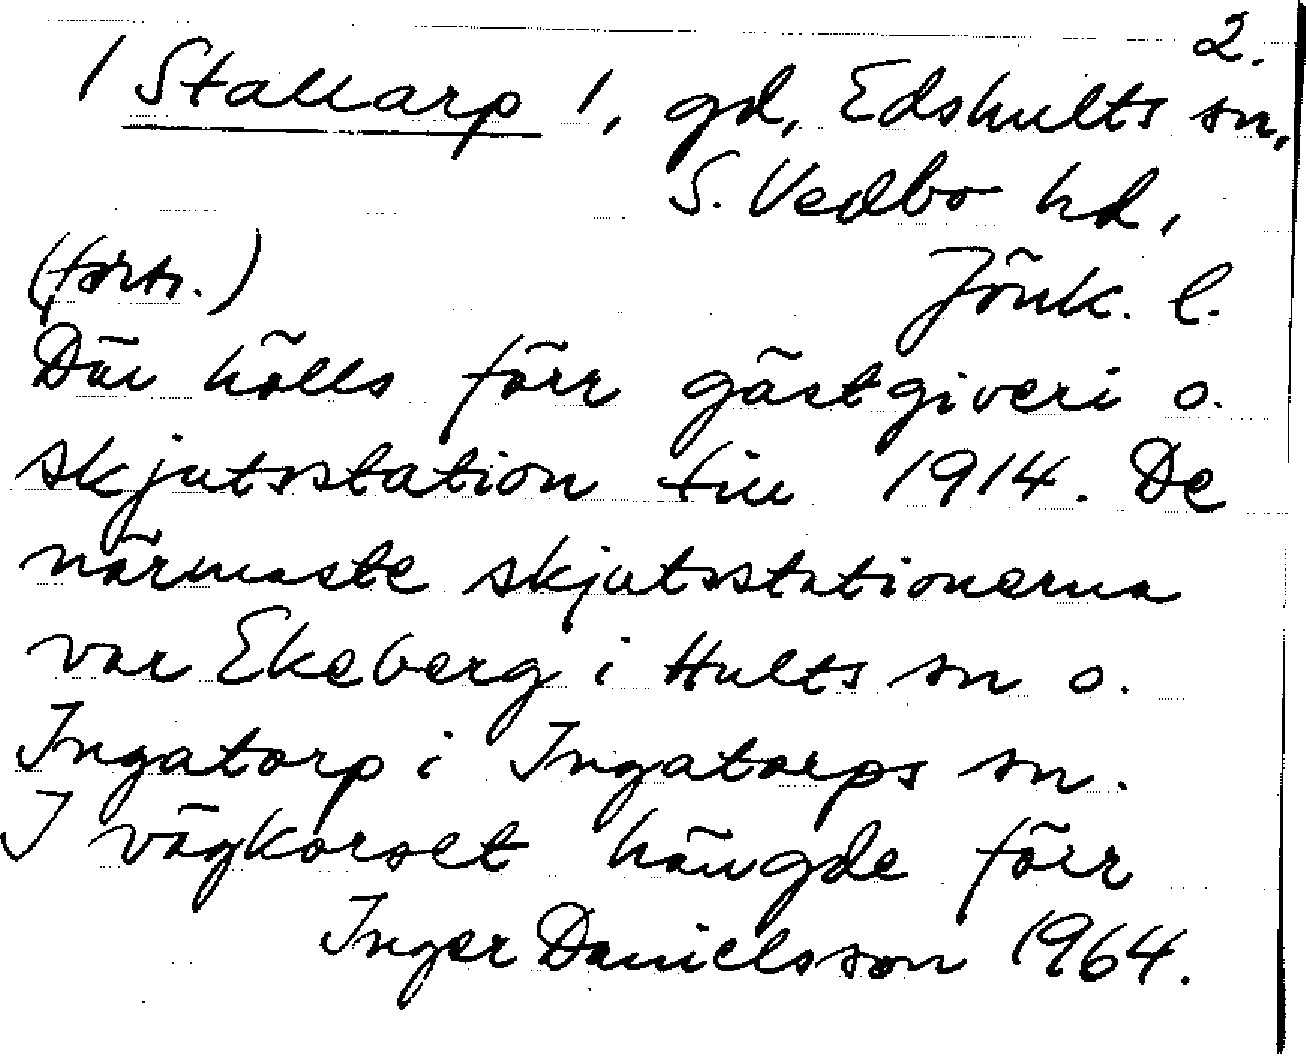 2.
/ Stallarp /, gd, Edshults sn,
S. Vedbo hd,
Jönk. l.
(forts.)
Där hölls förr gästgiveri o.
skjutsstation till 1914. De
närmaste skjutsstationerna
var Ekeberg i Hults sn o.
Ingatorp i Ingatorps sn.
I vägkorset hängde förr
Inger Danielsson 1964.